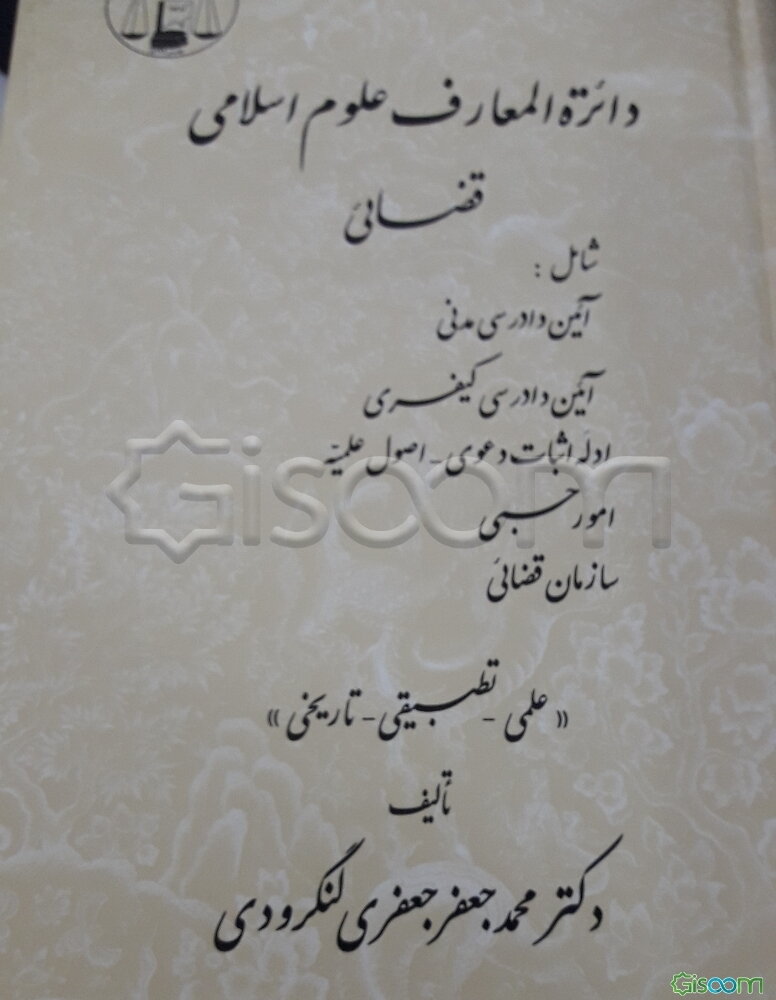 دائرة المعارف علوم اسلامی
قضائی
شامل :
آئین دادرسی مدنی
آئین دادرسی کیفری
ادله اثبات دعوی - اصول علمیّه
امور حسبی
سازمان قضائی
« علمی - تطبیقی - تاریخی »
تألیف
دکتر محمد جعفر جعفری لنگرودی
Gisoom
Gisoom